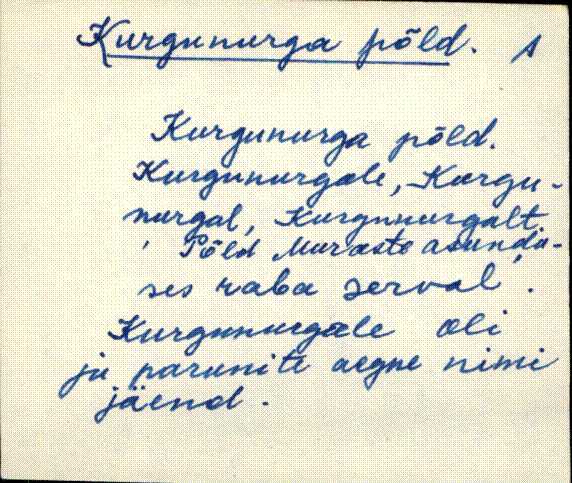 Kurgunurga põld. A
Kurgunurga põld.
Kurgunurgale, Kurgu-
nurgal, Kurgunurgalt.
Põld Muraste asundu-
ses raba serval.
Kurgunurgale oli
ju parunite aegne nimi
jäend.